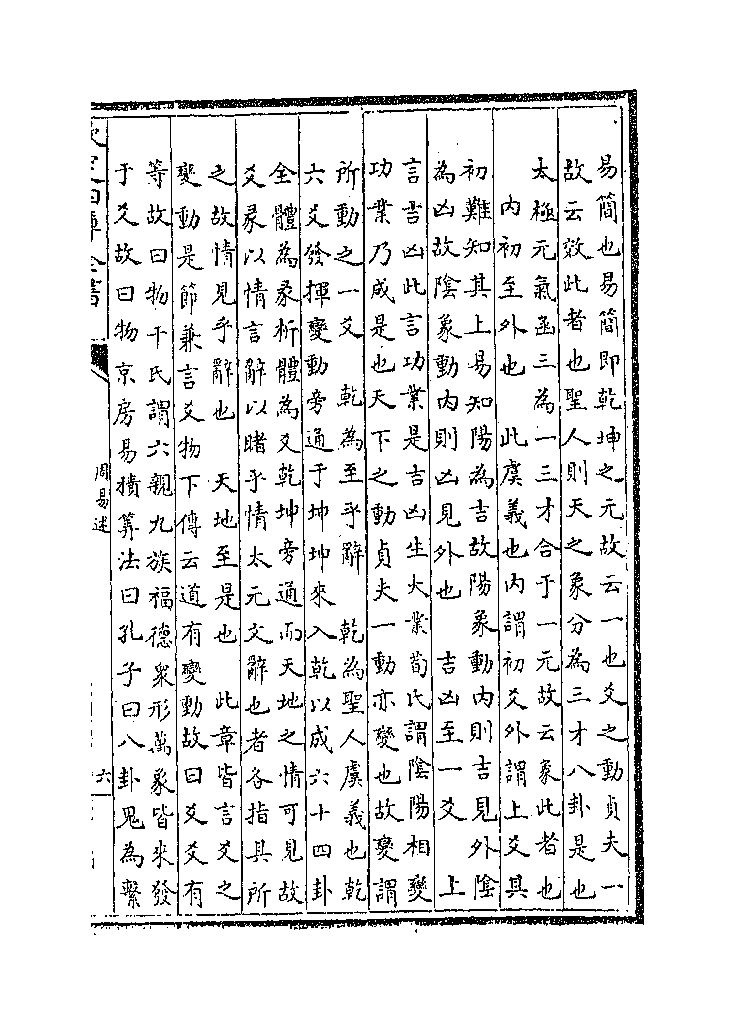 易簡也易簡即乾坤之元故云一也爻之動貞夫一
故云效此者也聖人則天之象分為三才八卦是也
太極元氣函三為一三才合于一元故云象此者也
内初至外也　此虞義也内謂初爻外謂上爻其
初難知其上易知陽為吉故陽象動内則吉見外陰
為凶故陰象動内則凶見外也　吉凶至一爻　上
言吉凶此言功業是吉凶生大業荀氏謂陰陽相變
功業乃成是也天下之動貞夫一動亦變也故變謂
所動之一爻　乾為至乎辭　乾為聖人虞義也乾
六爻發揮變動旁通于坤坤來入乾以成六十四卦
全體為彖析體為爻乾坤旁通而天地之情可見故
爻彖以情言辭以睹乎情太元文辭也者各指其所
之故情見乎辭也　天地至是也　此章皆言爻之
變動是節兼言爻物下傳云道有變動故曰爻爻有
等故曰物干氏謂六親九族福德衆形萬象皆來發
于爻故曰物京房易積算法曰孔子曰八卦鬼為繫
欽定四庫全書
周易述
六